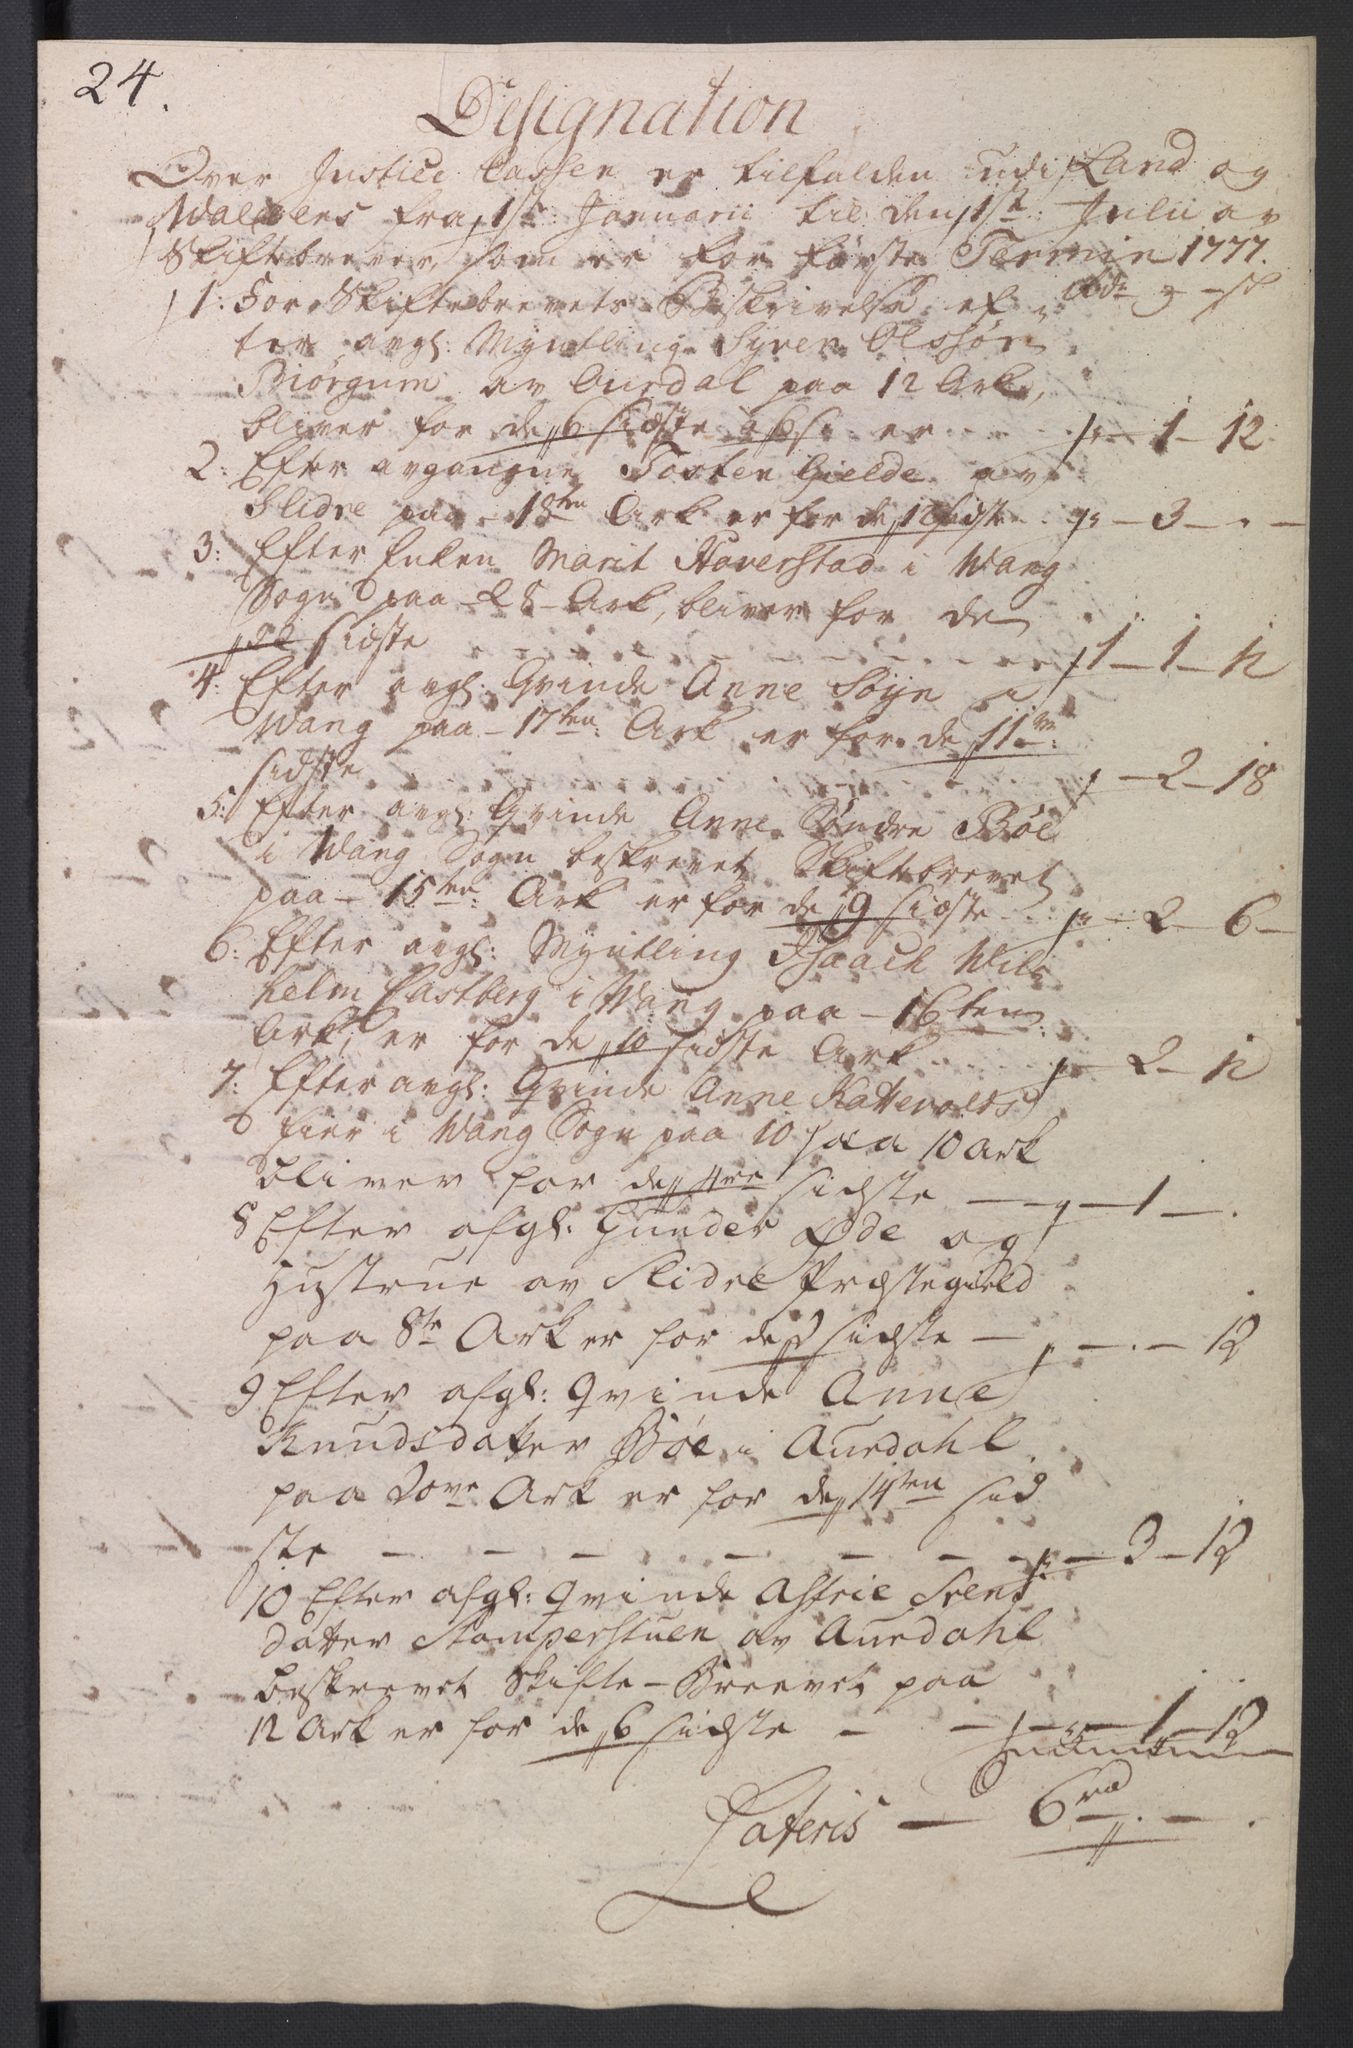 24.
Designation
Over Justice Cassen er tilfalden udi Land og
Walders fra 1ste Januarii til den 1ste Julii av
Skiftebrever, som er for første Termin 1777.
1: For Skiftebrevets Beskrivelse ef=
ter avgl: Myntling Syren Olssøn
Biørgum av Aurdal paa 12 Ark,
bliver for de 6 sidste er - 1 - 12
2: Efter avgangne Tosten Gielde av
Slidre paa - 18ten Ark er for de 12 sidste - 3 - . -
3: Efter Enken Marit Haverstad i Wang
Sogn paa - 28 - Ark, bliver for de
22 sidste 1 - 1 - 12
4: Efter avgl: Qvinde Anne Søyn i
Wang paa - 17ten: Ark er for de 11ve
sidste - 2 - 18
5: Efter avgl: Qvinde Anne Søndre Bøe
i Wang Sogn beskrevet Skiftebrevet
paa - 15ten: Ark er for de 9 sidste - 2 - 6 -
6: Efter avgl: Myntling Isaach Wil=
helm Castberg i Wang paa - 16ten
Ark, er for de 10 sidste Ark - 2 - 12
7: Efter avgl: Qvinde Anne Kattevolds
Eier i Wang Sogn paa 10 paa 10 Ark
bliver for de 4re sidste - 1 - .
8 Efter afgl: Gunder Øde og
Hustrue av Slidre Præstegield
paa 8te Ark er for de 2 sidste - . - 12
9 Efter afgl: Qvinde Anne
Knudsdatter Bøe i Aurdahl
paa 20ve Ark er for de 14ten sid
ste - - - - - - - 3 - 12
10 Efter afgl: Qvinde Astrie Svends
datter Stamperstuen av Aurdahl
beskrevet Skifte - Breevet paa
12 Ark er for de 6 sidste - - 1 - 12
Lateris - 6rd - . - .